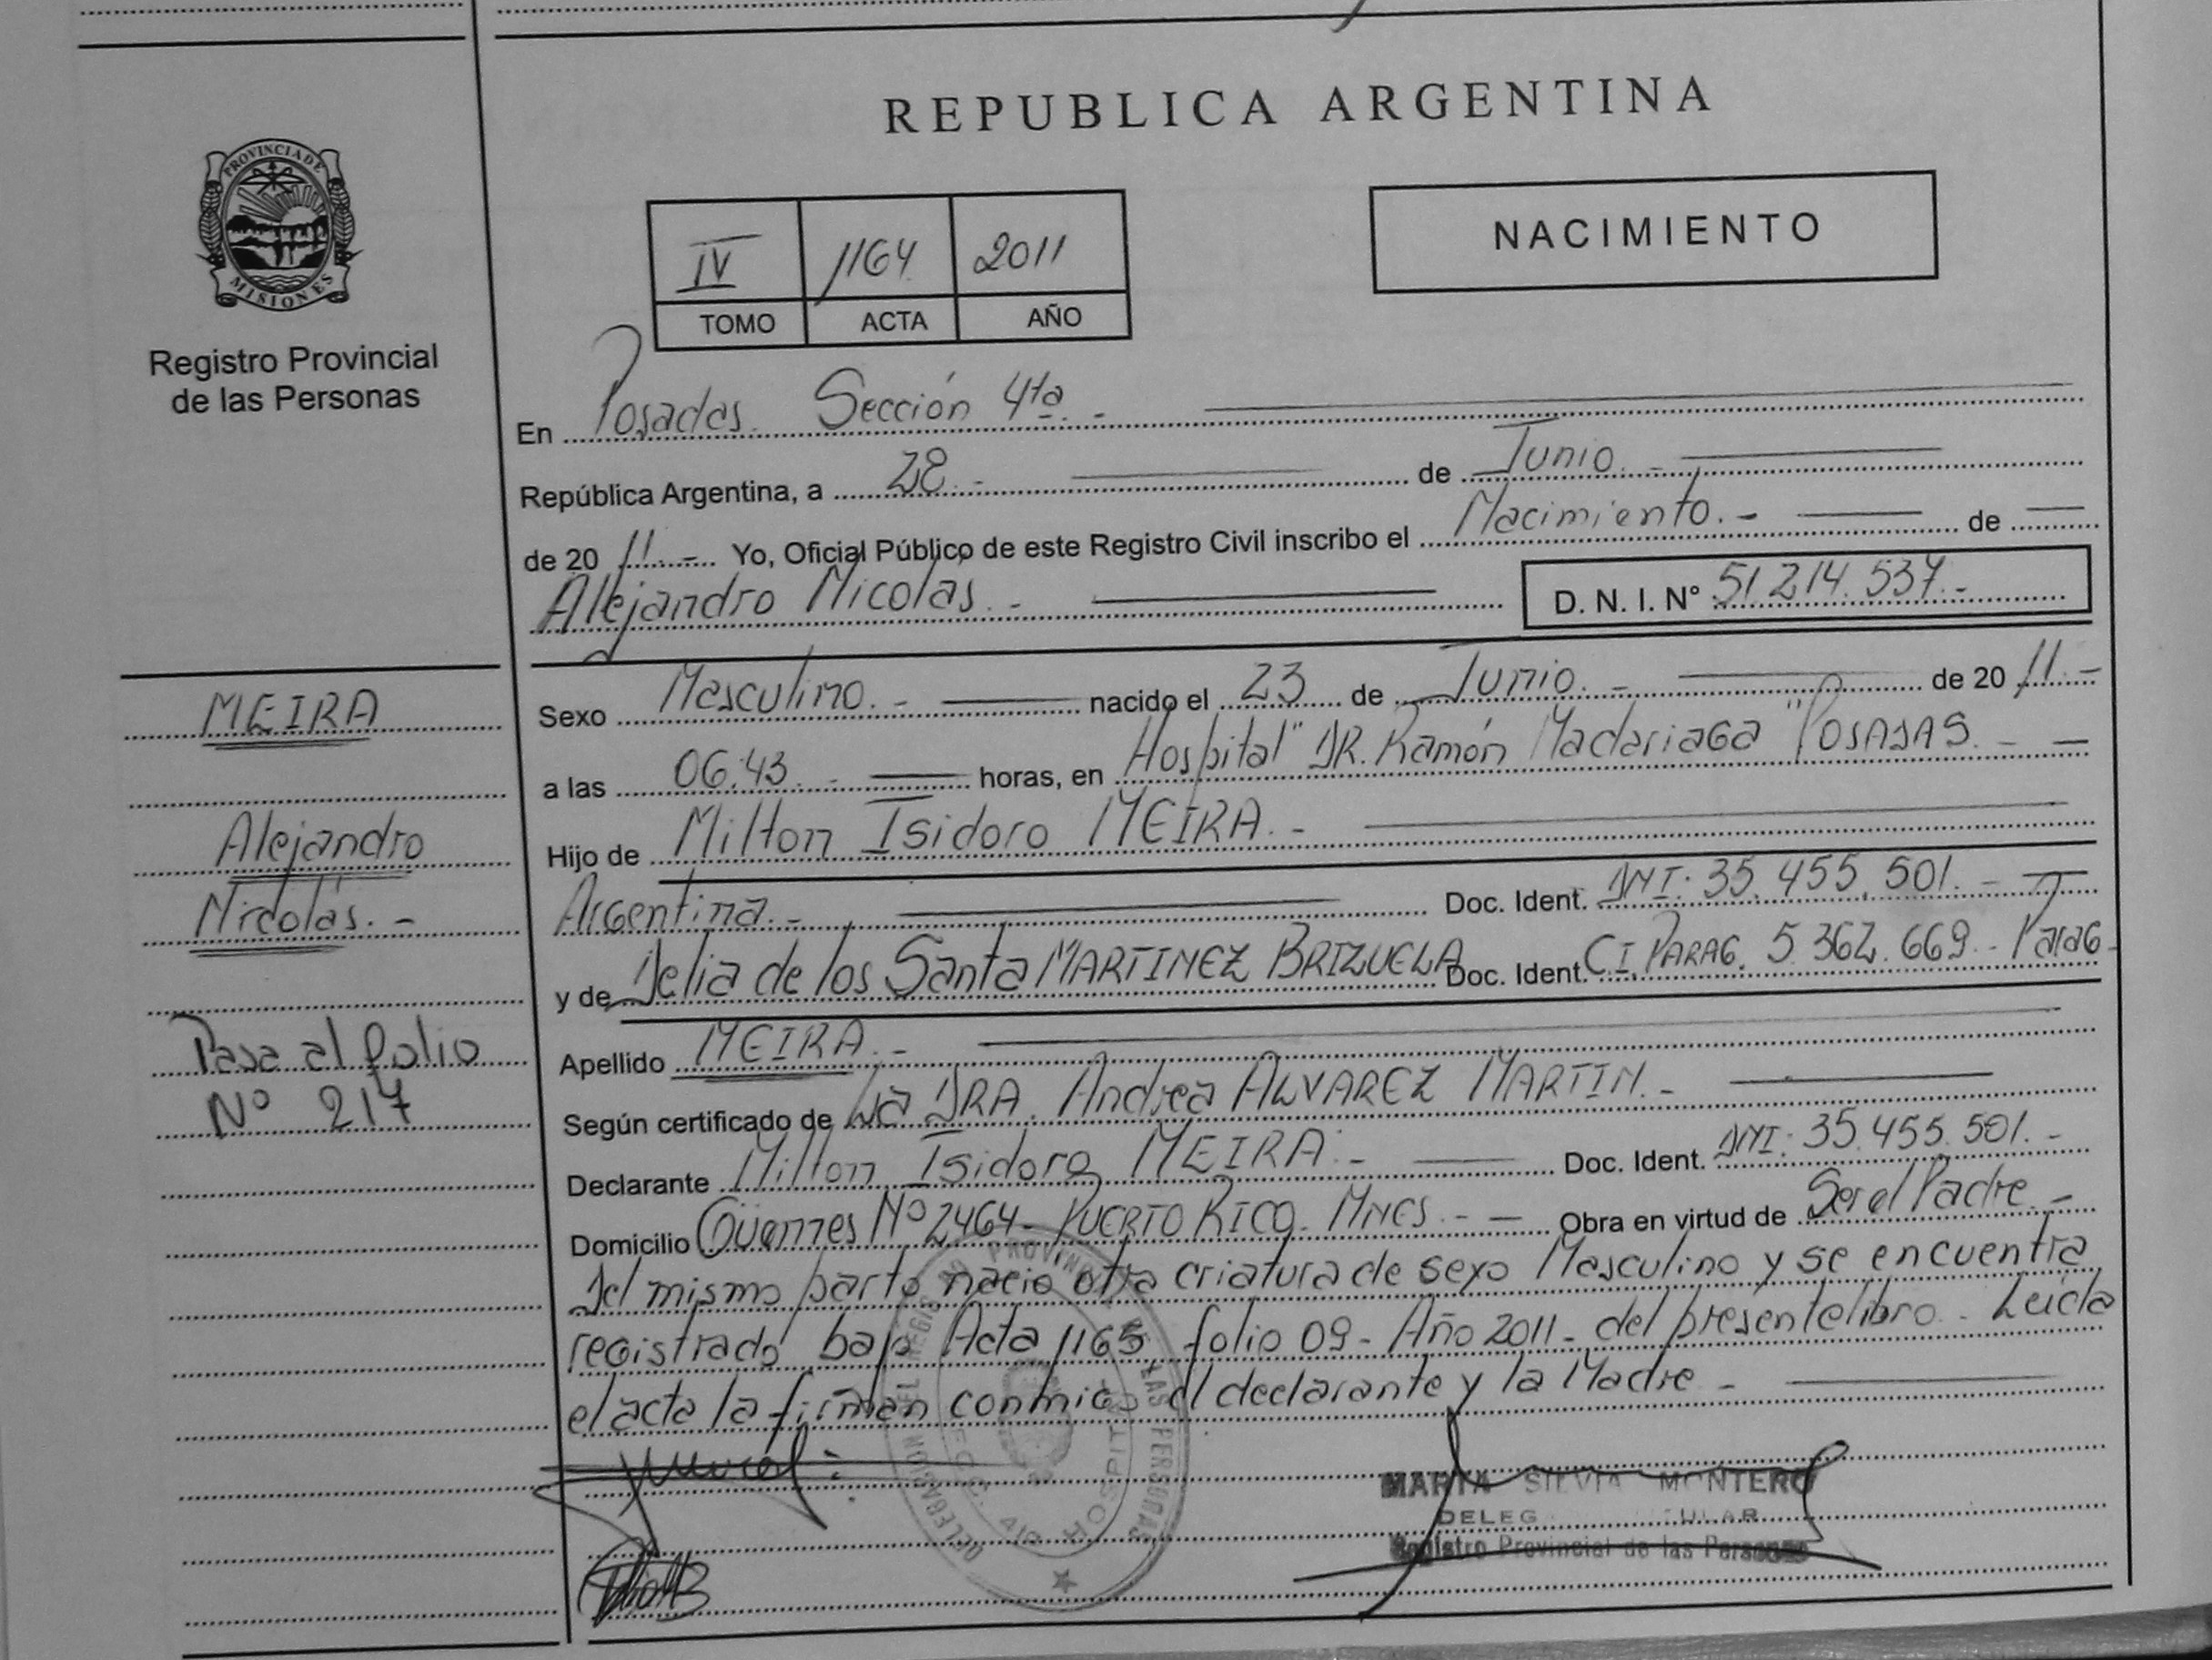 PROVINCIA DE
MISIONES
Registro Provincial
de las Personas
REPUBLICA ARGENTINA
NACIMIENTO
IV 1164 2011
TOMO ACTA AÑO
En Posadas. Sección 4ta. -
República Argentina, a 28. - de Junio. -
de 20 11. - Yo, Oficial Público de este Registro Civil inscribo el Nacimiento. - de
Alejandro Nicolás. - D. N. I. N° 51.214.537. -
MEIRA
Alejandro
Nicolás. -
Pasa al folio
Nº 217
Sexo Masculino. - nacido el 23 de Junio. - de 20 11. -
a las 06:43. - horas, en Hospital "DR. Ramón Madariaga" POSADAS. -
Hijo de Milton Isidoro MEIRA. -
Argentina. - Doc. Ident. DNI: 35.455.501. -
y de Delia de los Santa MARTINEZ BRIZUELA Doc. Ident. C.I. PARAG. 5.362.669. - Parag -
Apellido MEIRA. -
Según certificado de La DRA. Andrea ALVAREZ MARTIN. -
Declarante Milton Isidoro MEIRA. - Doc. Ident. DNI: 35.455.501. -
Domicilio Güemes Nº 2464 - PUERTO RICO. MNES. - Obra en virtud de Ser el Padre. -
Del mismo parto nacio otra criatura de sexo Masculino y se encuentra
registrado bajo Acta 1165 folio 09 - Año 2011 - del presente libro. - Leida
el acta la firman conmigo el declarante y la Madre -
MARTA SILVIA MONTERO
Registro Provincial de las Personas